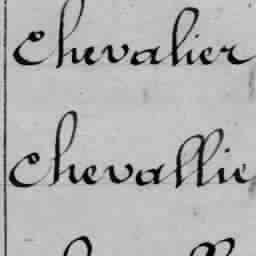 Chevalier
Chevallie